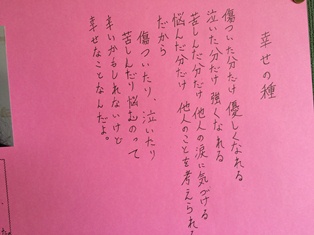 幸せの種
傷ついた分だけ 優しくなれる
泣いた分だけ 強くなれる
苦しんだ分だけ 他人の涙に気づける
悩んだ分だけ 他人のことを考えられる
だから
傷ついたり、泣いたり
苦しんだり悩むのって
辛いかもしれないけど
幸せなことなんだよ。